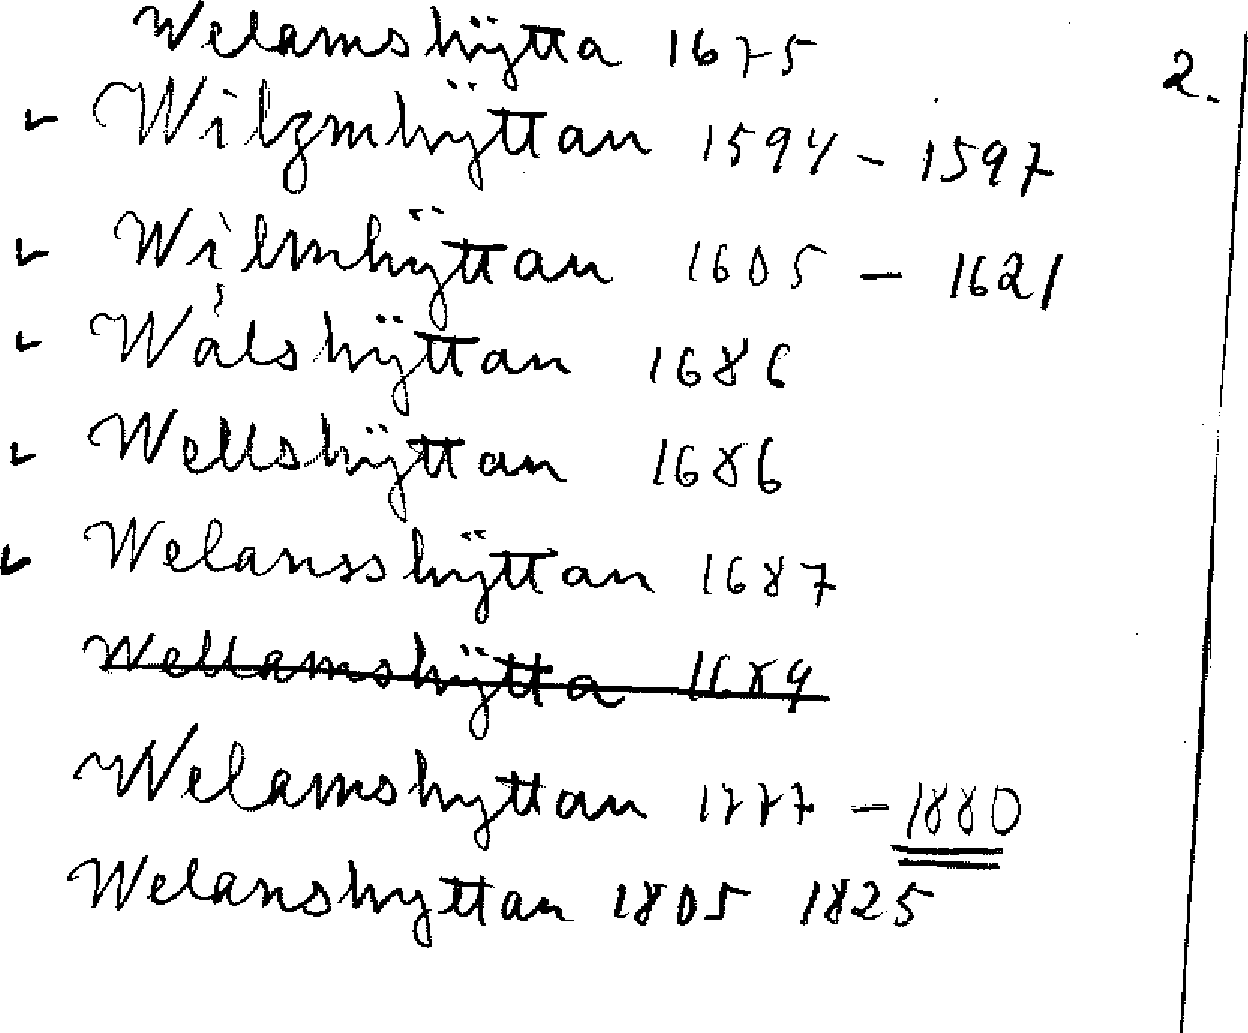 Welamshÿtta 1675
2.
Wilzmhÿttan 1594 - 1597
Wilmhÿttan 1605 - 1621
Wålshÿttan 1686
Wellshÿttan 1686
Welansshÿttan 1687
Wellamshÿtta 1689
Welamshyttan 1777 - 1880
Welanshyttan 1805 1825